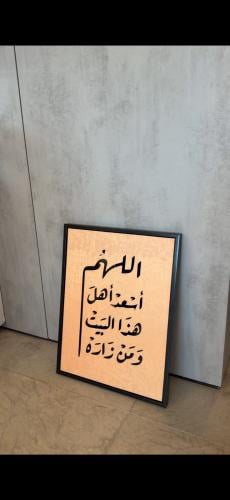 اللهُم
أسْعدْ أهلَ
هذَا البَيتْ
وَمَنْ زَارَهْ